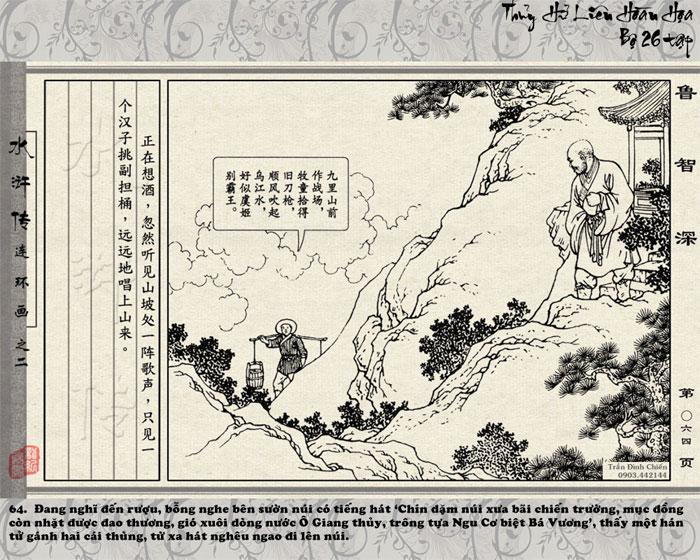 Thủy Hử Liên Hoàn Họa
Bộ 26 tập
水浒传连环画之二
鲁智深
第〇六四页
正在想酒，忽然听见山坡处一阵歌声，只见一
个汉子挑副担桶，远远地唱上山来。
九里山前
作战场，
牧童拾得
旧刀枪，
顺风吹起
乌江水，
好似虞姬
别霸王。
Trần Đình Chiến
0903.442144
64. Đang nghĩ đến rượu, bỗng nghe bên sườn núi có tiếng hát ‘Chín dặm núi xưa bãi chiến trường, mục đồng
còn nhặt được đao thương, gió xuôi dòng nước Ô Giang thủy, trông tựa Ngu Cơ biệt Bá Vương’, thấy một hán
tử gánh hai cái thùng, từ xa hát nghêu ngao đi lên núi.